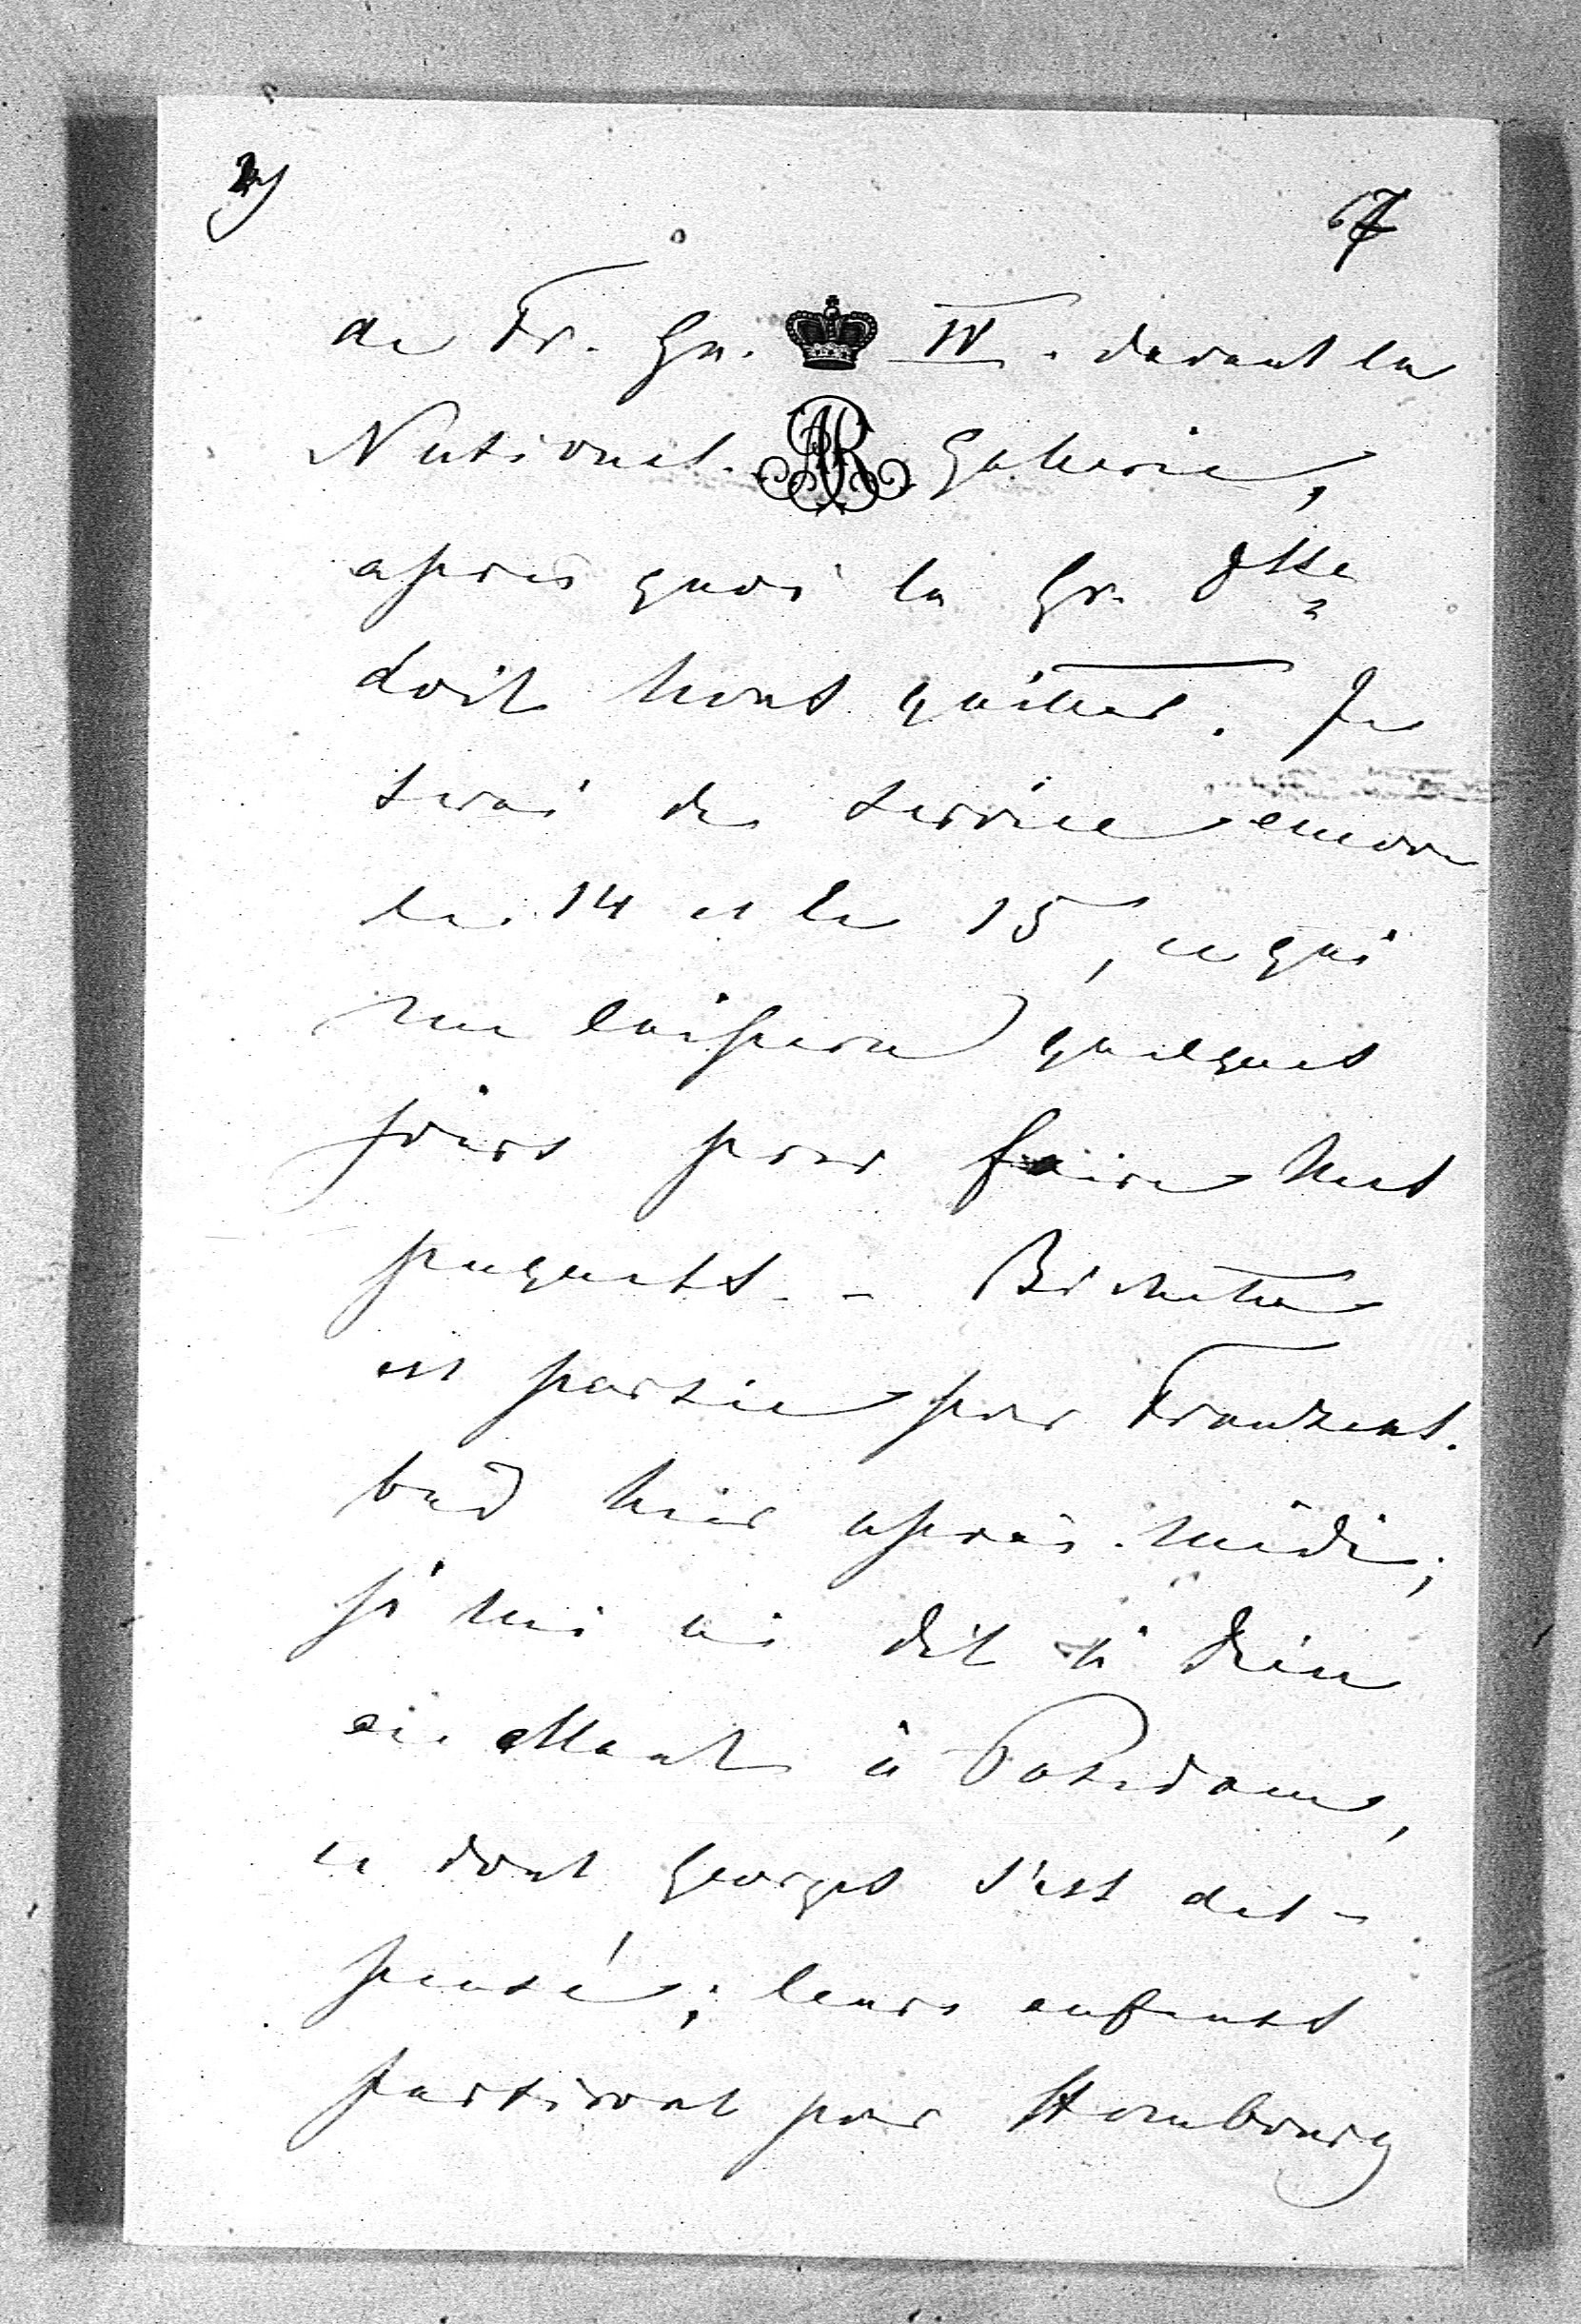 2)
67
de Fr. Gu. IV. devant la
National. Galerie,
après quoi la Gr. Dsse
doit nous quitter. Je
serai de service encore
le 14 et le 15, ce qui
me laissera quelques
jours pour faire mes
paquets. -
est partie pour Franzens-
bad hier après-midi;
je lui ai dit adieu
en allant à Potsdam,
ce dont Georges s'est dis-
pensé; leurs enfants
partiront pour Hombourg